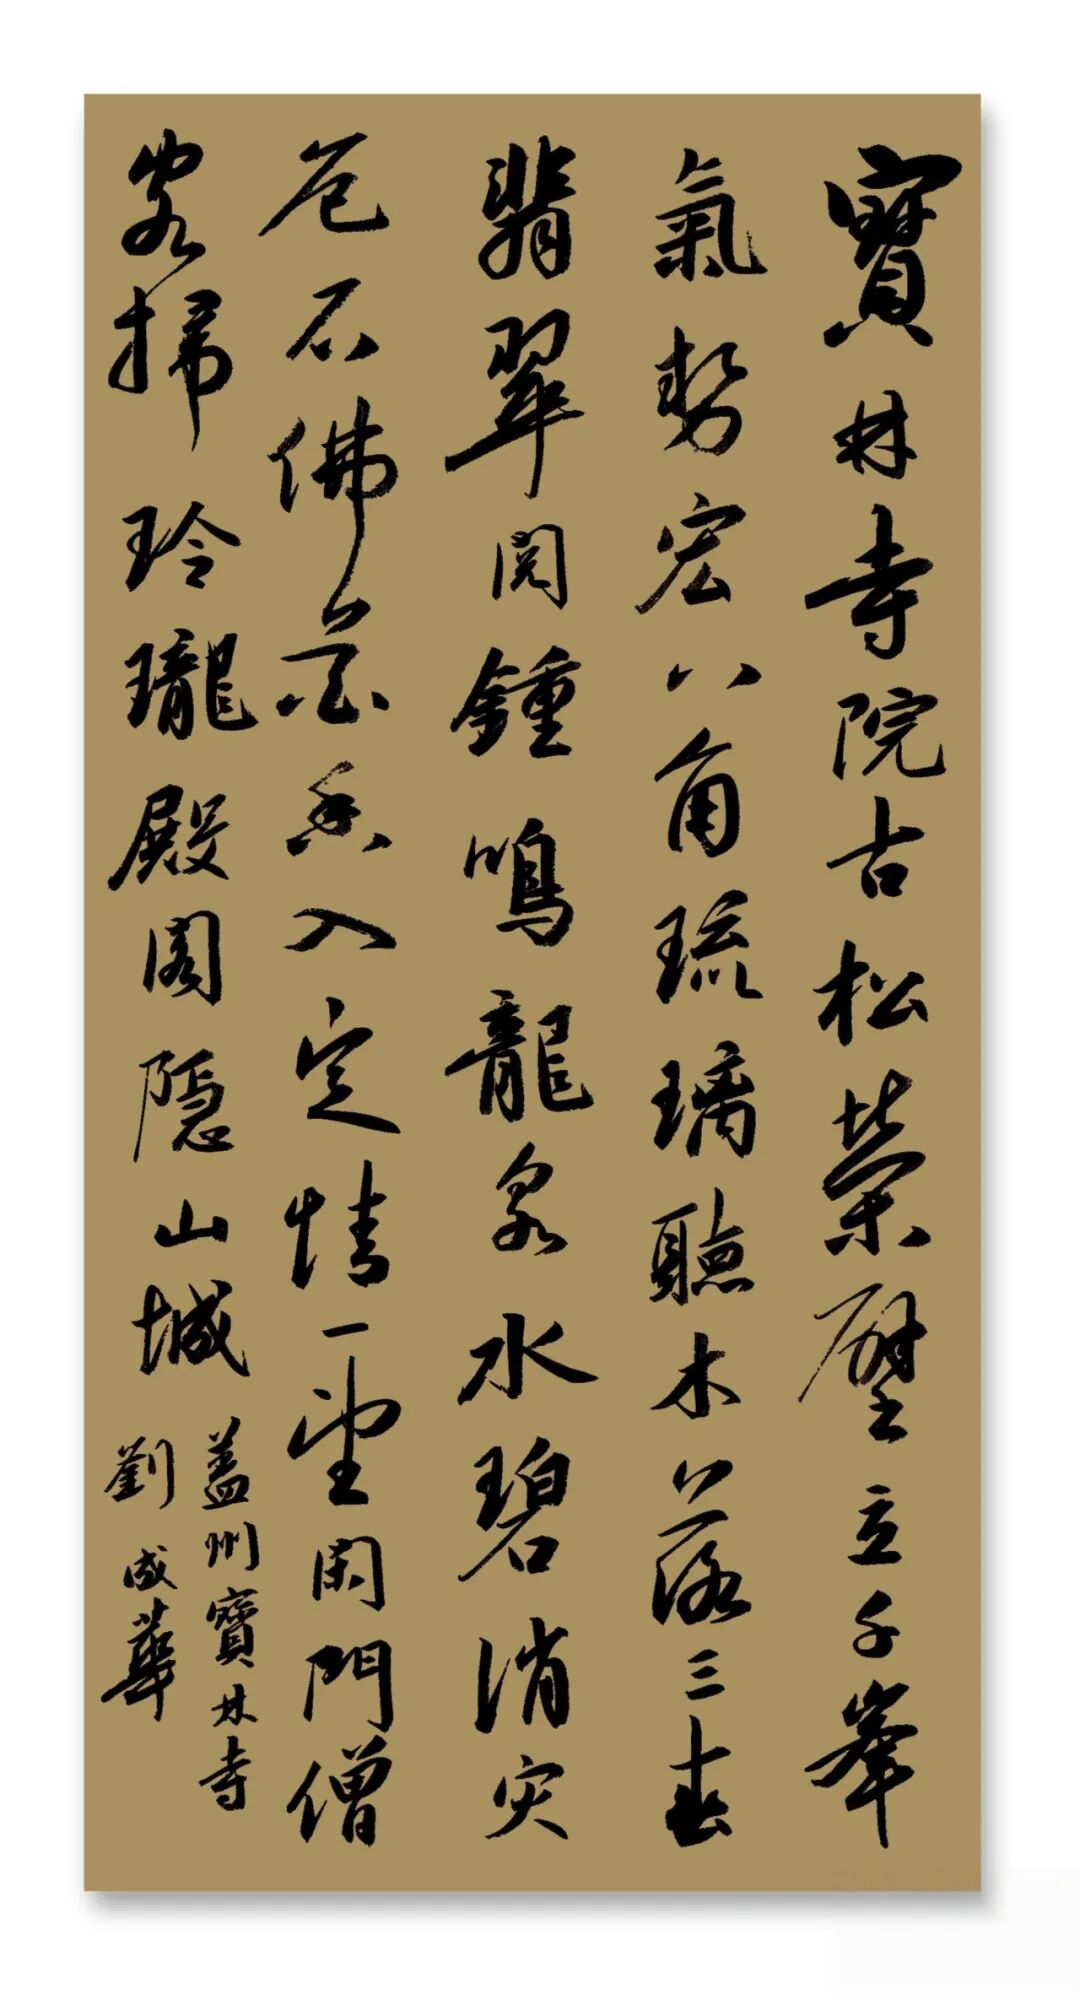 寶林寺院古松榮壁立千峯
氣勢宏八角琉璃聽木落三春
翡翠閲鍾鳴龍泉水碧消灾
厄石佛香入定情一望閑門僧
客掃玲瓏殿閣隱山城
盖州寶林寺
劉成華